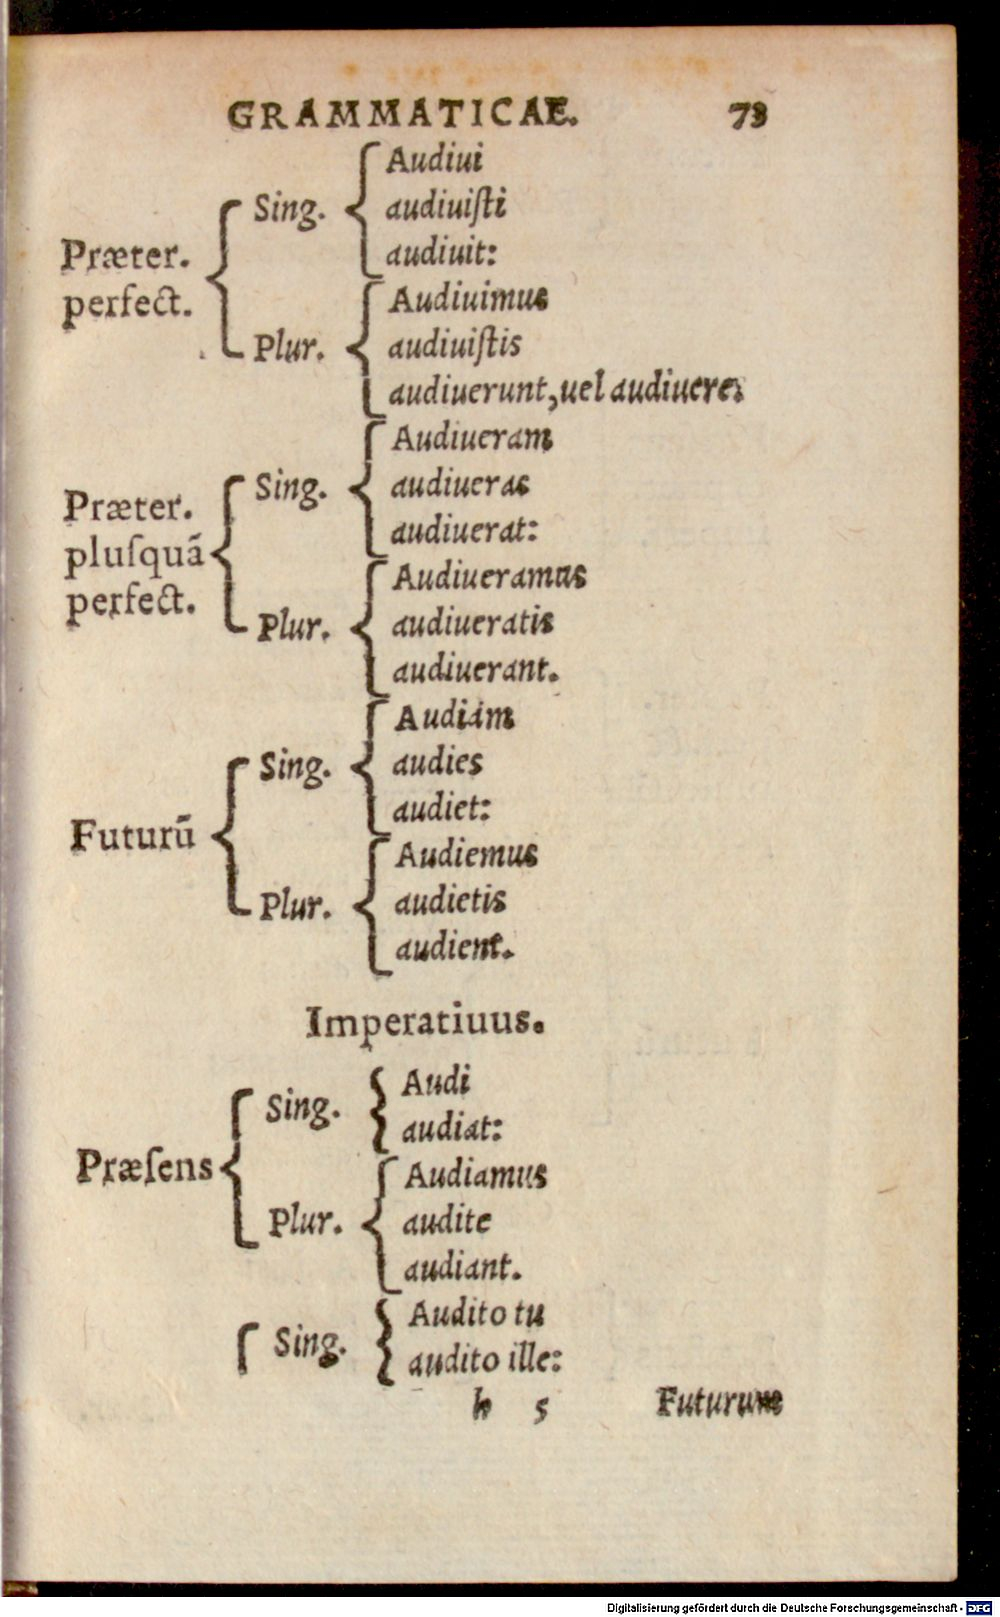 GRAMMATICAE. 73
Præter.
perfect.
Sing.
Audiui
audiuiſti
audiuit:
Plur.
Audiuimus
audiuiſtis
audiuerunt, uel audiuere.
Præter.
pluſquã
perfect.
Sing.
Audiueram
audiueras
audiuerat:
Plur.
Audiueramus
audiueratis
audiuerant.
Futurũ
Sing.
Audiam
audies
audiet:
Plur.
Audiemus
audietis
audient.
Imperatiuus.
Præſens
Sing.
Audi
audiat:
Plur.
Audiamus
audite
audiant.
Sing.
Audito tu
audito ille:
h 5 Futurum
Digitalisierung gefördert durch die Deutsche Forschungsgemeinschaft - DFG